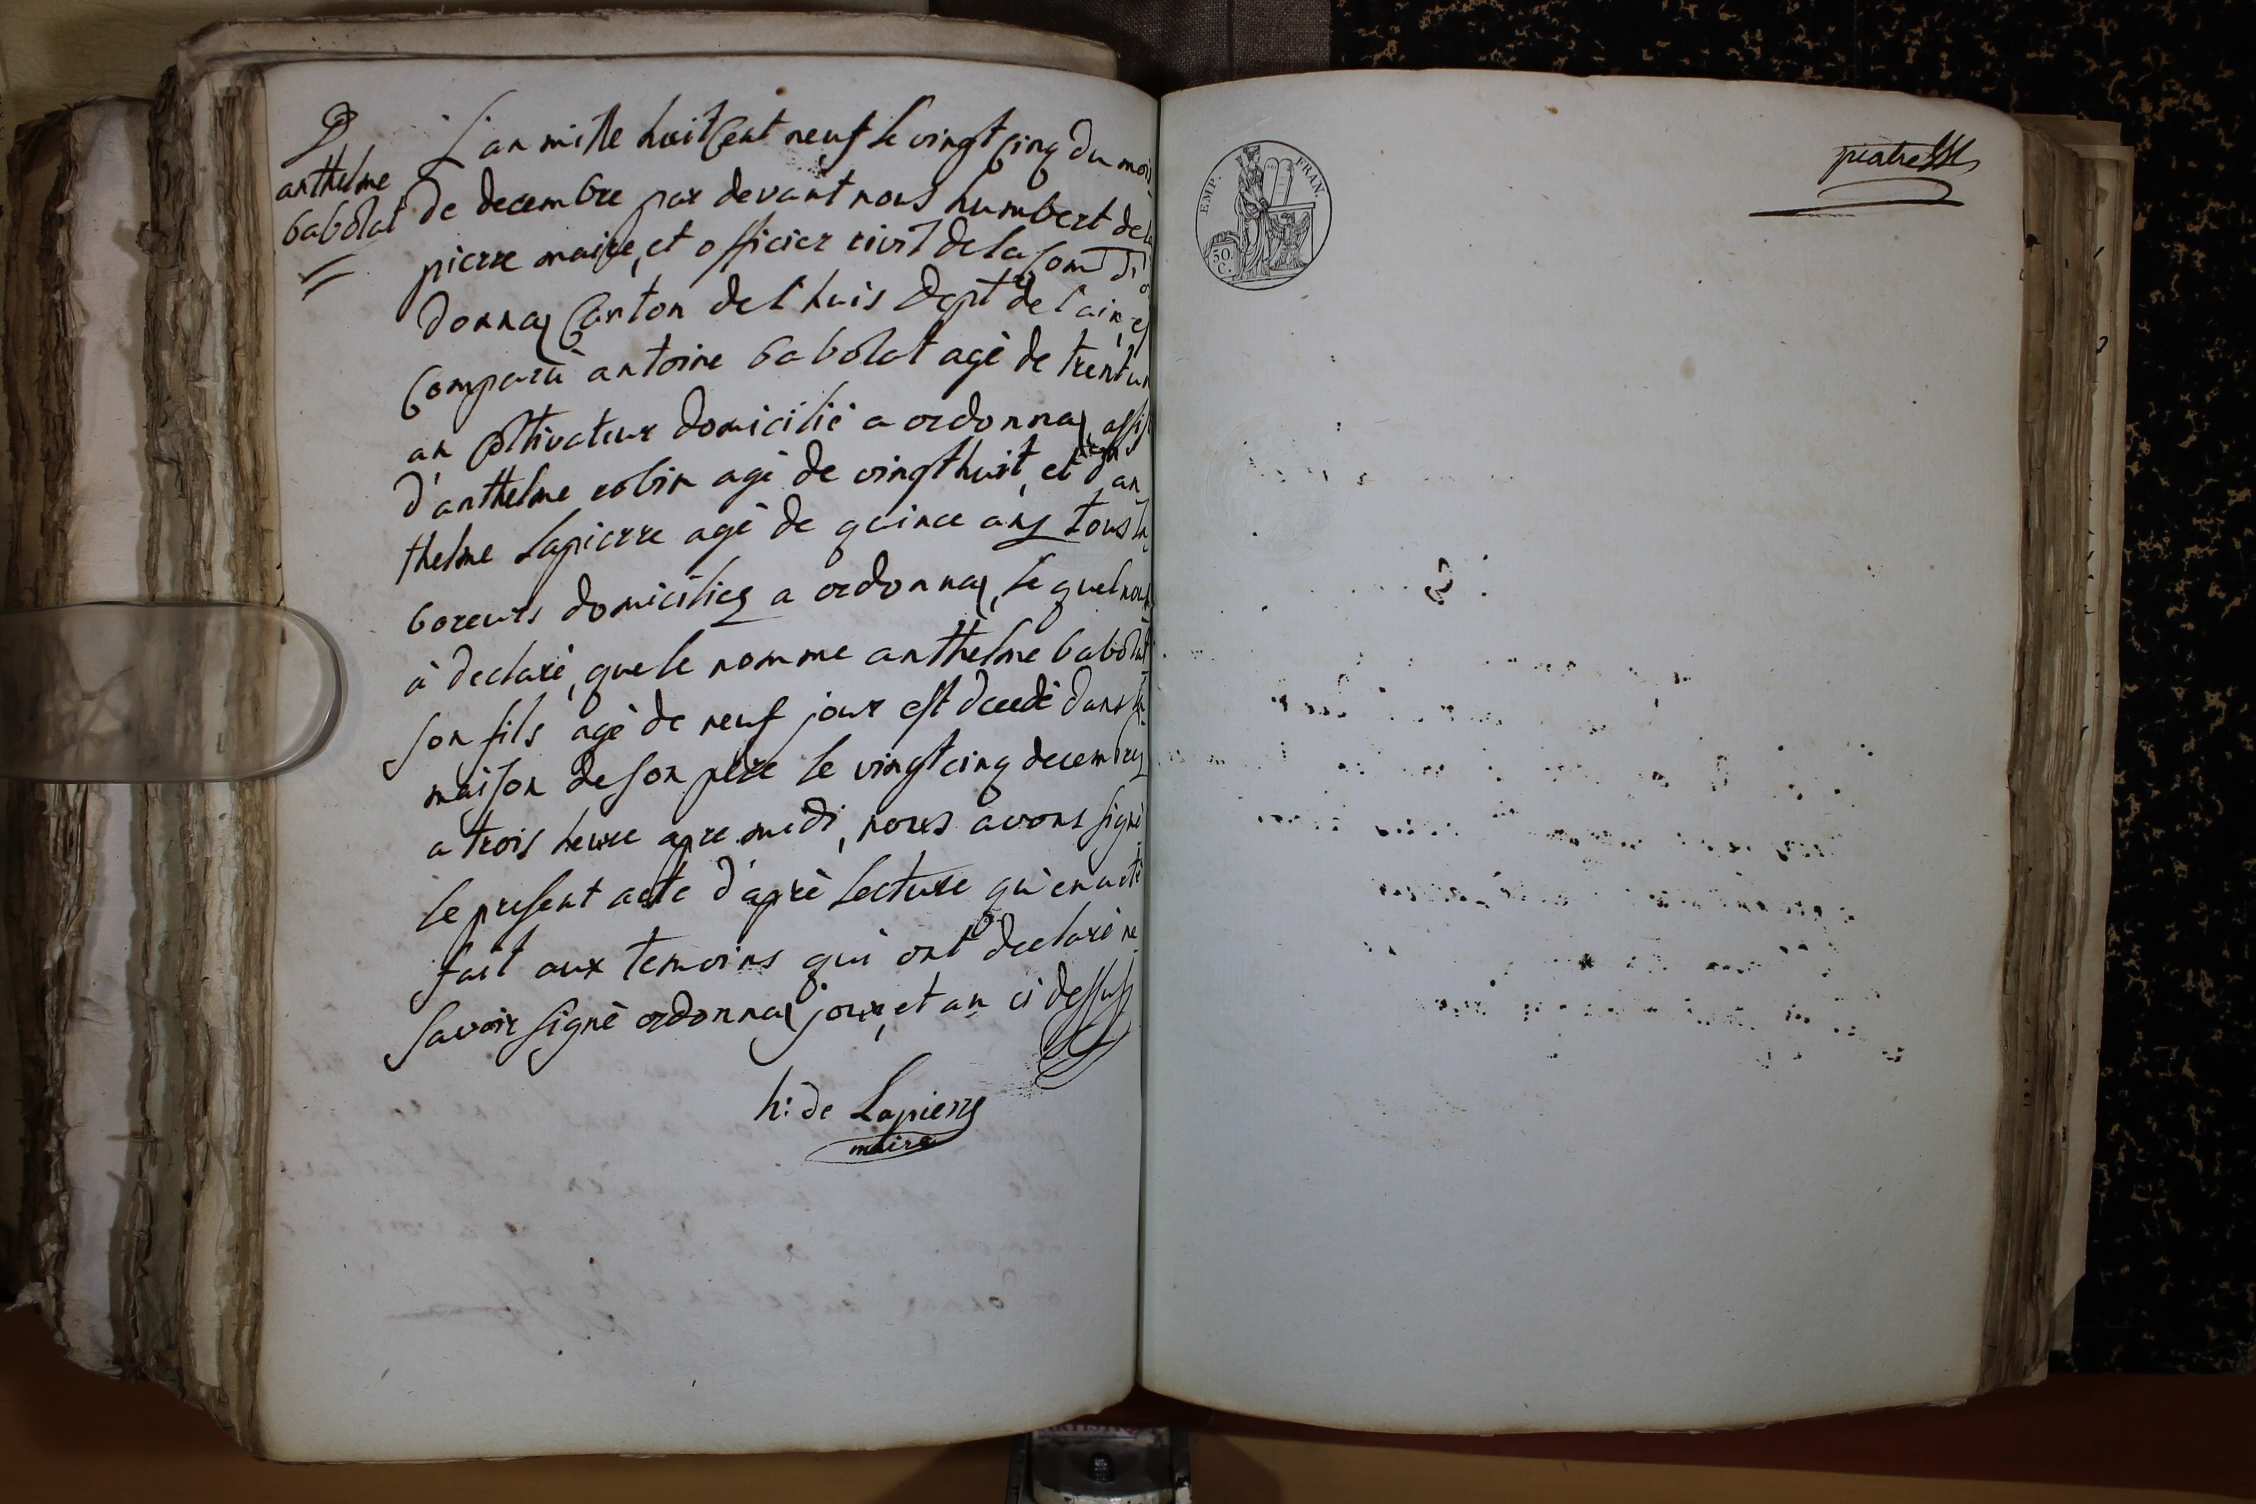 D
anthelme
babolat
L'an mille huit Cent neuf le vingt Cinq du mois
de decembre par devant nous humbert de la
pierre maire, et officier civil de la Com d'or
donnaz Canton de l'huis Dept de l'ain, est
Comparù antoine babolat agé de trent un
an Coltivateur domicilié a ordonnaz, assisté
d'anthelme robin agé de vingt huit, et d'an
thelme Lapierre agé de quince ans tous la
boreurs domiciliez a ordonnaz, le quel nous
à declaré, que le nomme anthelme babolat
son fils agé de neuf jour est decedé dans la
maison de son pere le vingt cinq decembre
a trois heure apre midi, nous avons signé
le present acte d'aprè lecture qu'en a eté
fait aux temoins qui ont declaré ne
savoir signè ordonnaz jour, et an ci dessus
h: de Lapierre
maire
EMP. FRAN.
50.
C.